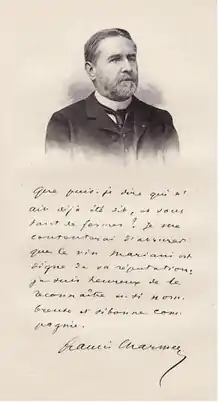 Que puis-je dire qui n'
ait déjà été dit, et sous
tant de formes? Je me
contenterai d'assurer
que le vin Mariani est
digne de sa réputation;
je suis heureux de le
reconnaître en si nom
breuse et si bonne com
pagnie.
Francis Charmes